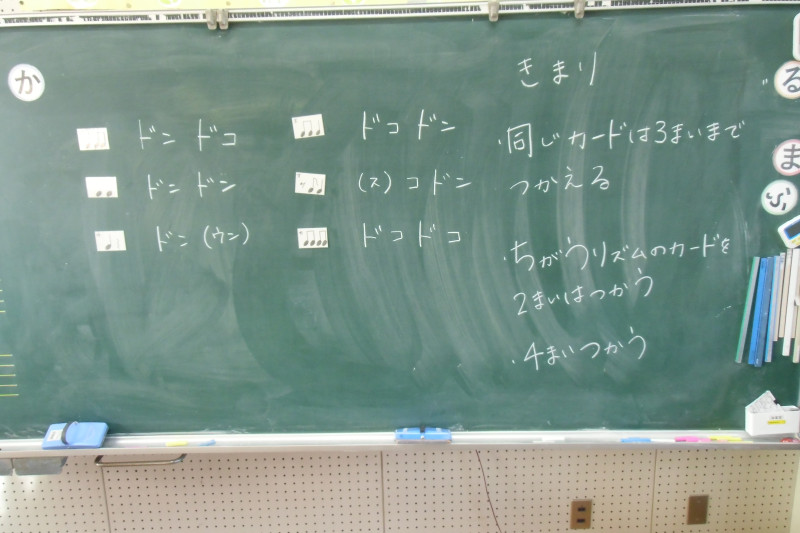 か
ドン ドコ
ドン ドン
ドン (ウン)
ドコ ドン
(ス) コ ドン
ドコ ドコ
きまり
・同じカードは3まいまで
つかえる
・ちがうリズムのカードを
2まいはつかう
・4まいつかう
る
ま